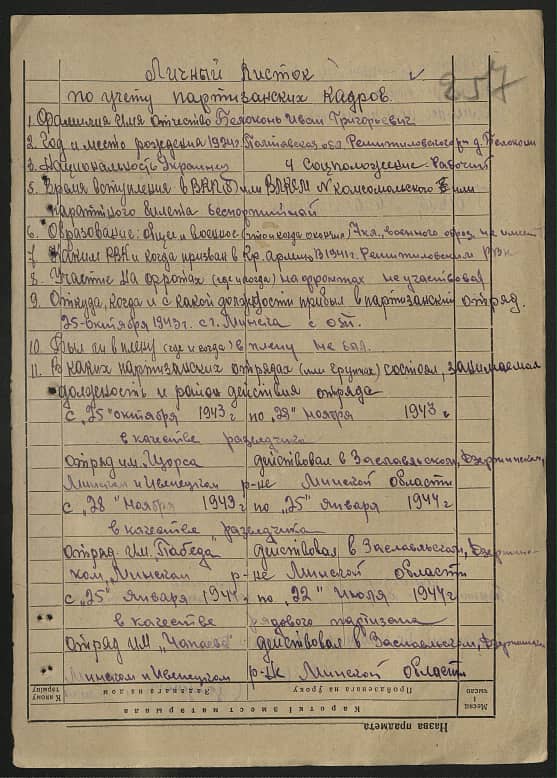 Личный листок
257
по учету партизанских кадров.
1. Фамилия Имя Отчество Белоконь Иван Григорьевич
2. Год и место рождения 1924г. Полтавская обл Решетиловский р-н д. Белокони
3. Национальность Украинец 4 Соцположение: Рабочий
5. Время вступления в ВКП(б) или ВЛКСМ № комсомольского или
партийного билета беспартийный
6. Образование: общее и военное (что и когда окончил) 7 кл., военного образ. не имеет
7. Каким РВК и когда призван в Кр. Армию В 1941 г. Решетиловским РВК
8. Участие на фронтах (где и когда) на фронтах не участвовал
9. Откуда, когда и с какой должности прибыл в партизанский отряд.
25-октября 1943г. с г. Минска с
10. Был ли в плену (где и когда) в плену не был.
11. В каких партизанских отрядах (или группах) состоял, занимаемая
должность и район действия отряда
с „25" октября 1943г по „28" ноября 1943 г
в качестве разведчика
Отряд им. Щорса действовал в Заславльском, Дзержинском,
Минском и Ивенецком р-не Минской области
с „28" ноября 1943г по „25" января 1944г
в качестве разведчика
Отряд им. „Победа" действовал в Заславльском, Дзержинс-
ком, Минском р-не Минской области
с „25" января 1944 г по „22" июля 1944г
в качестве рядового партизана
Отряд им „Чапаева" действовал в Заславльском, Дзержинском
Минском и Ивенецком р-не Минской области
Месяц і чысло
Пройдзенае на уроку
Заданае на дом
Какому тэрміну
Кароткі змест матэрыяла
Назва прадмета